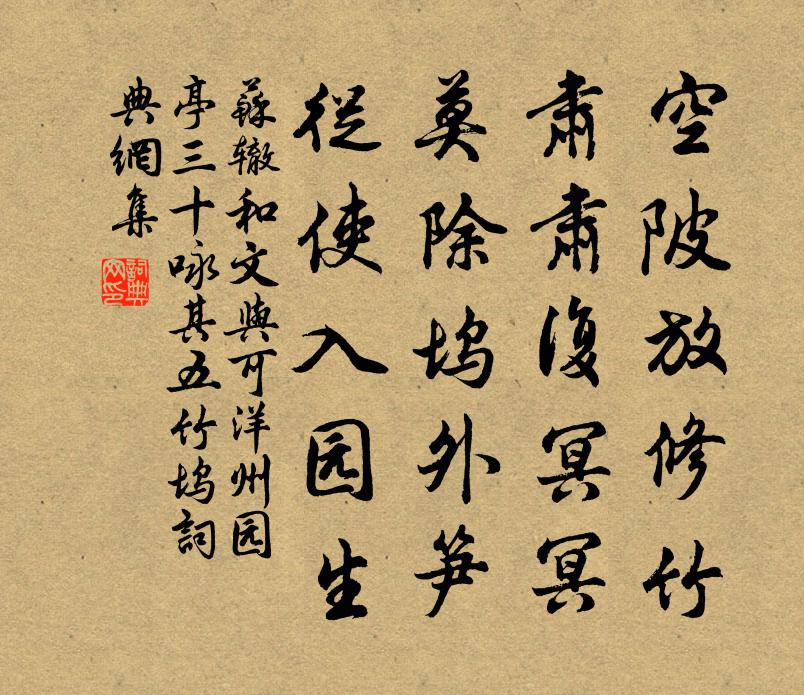 空陂放修竹
肅肅復冥冥
莫除坞外笋
從使入园生
蘇辙和文與可洋州园
亭三十咏其五竹坞詞
典網集
詞典网印